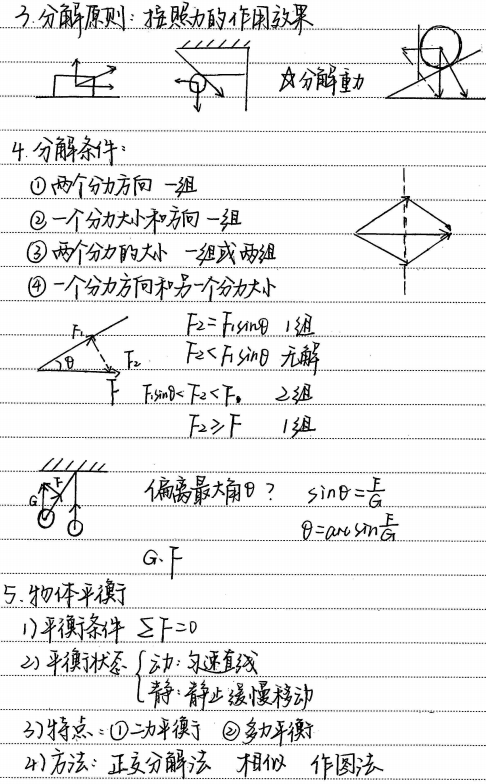 3.分解原则：按照力的作用效果
☆分解重力
4.分解条件：
①两个分力方向 一组
②一个分力大小和方向 一组
③两个分力的大小 一组或两组
④一个分力方向和另一个分力大小
F₁ θ F₂ F
F₂=F₁sinθ 1组
F₂<F₁sinθ 无解
F₁sinθ<F₂<F 2组
F₂≥F 1组
G F
偏离最大角θ？ sinθ=F/G
θ=arcsin F/G
G、F
5.物体平衡
1)平衡条件 ΣF=0
2)平衡状态 { 动：匀速直线
静：静止缓慢移动
3)特点：①二力平衡 ②多力平衡
4)方法：正交分解法 相似 作图法